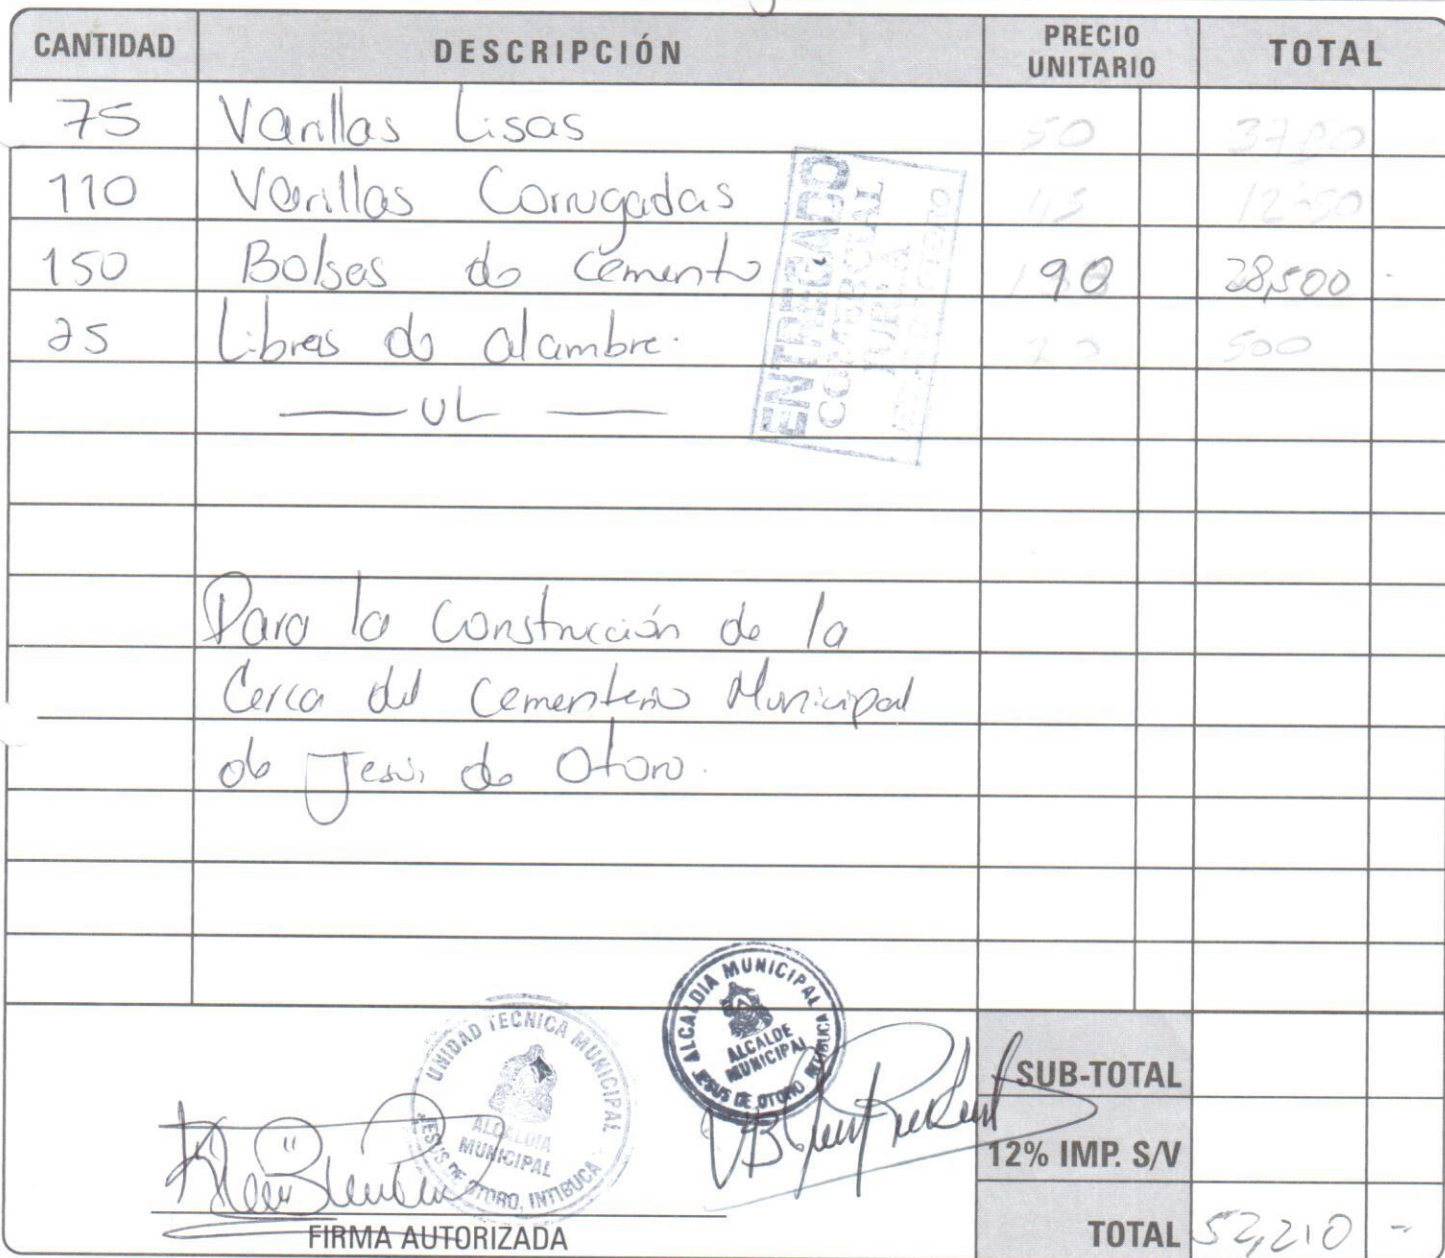 CANTIDAD DESCRIPCIÓN PRECIO UNITARIO TOTAL
75 Varillas Lisas 50
110 Varillas Corrugadas 115 12650
150 Bolsas de Cemento 190 28,500
25 Libras de alambre. 20 500
UL
ENTREGADO
COMERCIAL
Para la Construcción de la
Cerca del Cementerio Municipal
de Jesús de Otoro.
UNIDAD TECNICA MUNICIPAL
ALCALDIA MUNICIPAL
JESUS DE OTORO, INTIBUCA
ALCALDIA MUNICIPAL
ALCALDE MUNICIPAL
JESUS DE OTORO INTIBUCA
SUB-TOTAL
12% IMP. S/V
TOTAL 52,210 -
FIRMA AUTORIZADA